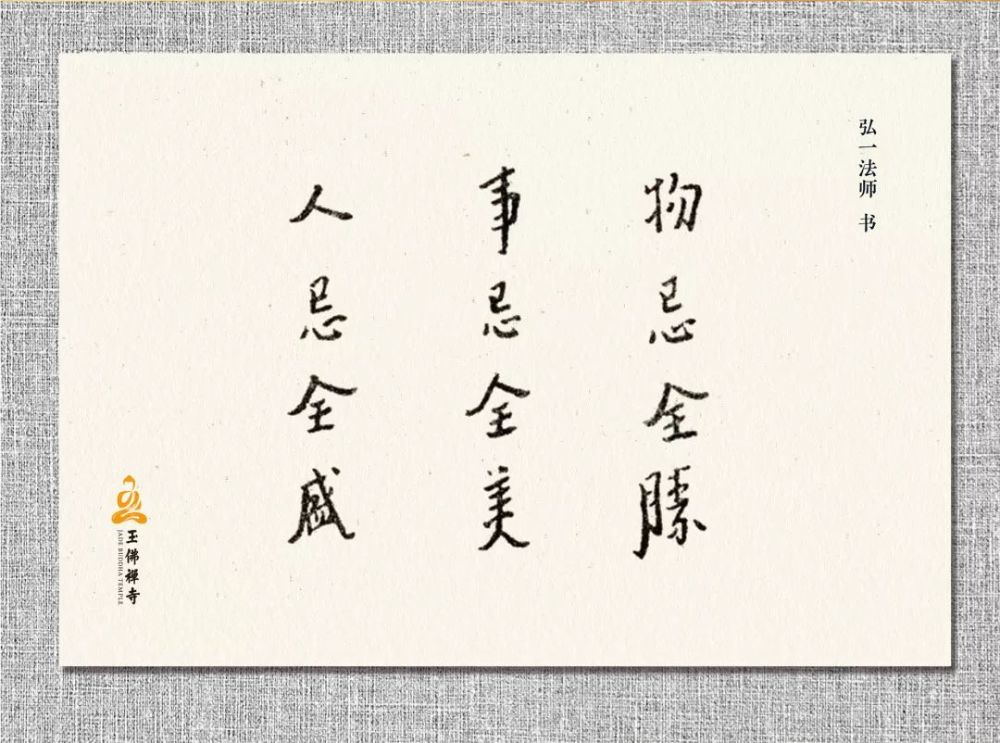 弘一法师 书
物忌全勝
事忌全美
人忌全盛
玉佛禅寺
JADE BUDDHA TEMPLE